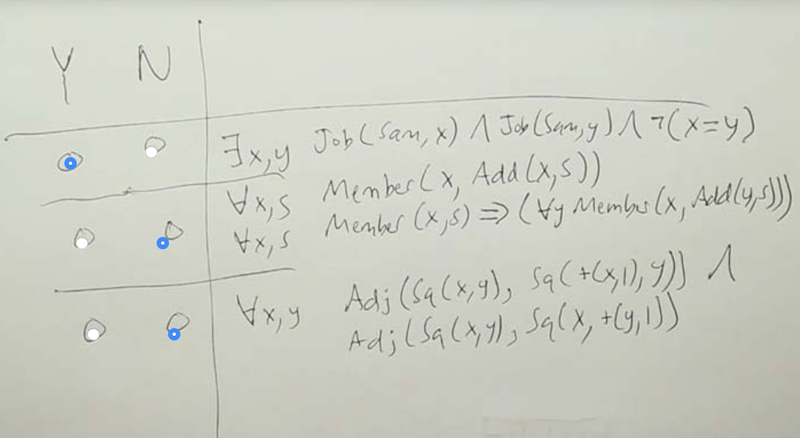 Y N
∃x,y Job(Sam,x) ∧ Job(Sam,y) ∧ ¬(x=y)
∀x,s Member(x, Add(x,s))
∀x,s Member(x,s) ⇒ (∀y Member(x, Add(y,s)))
∀x,y Adj(Sq(x,y), Sq(+(x,1),y)) ∧
Adj(Sq(x,y), Sq(x,+(y,1))